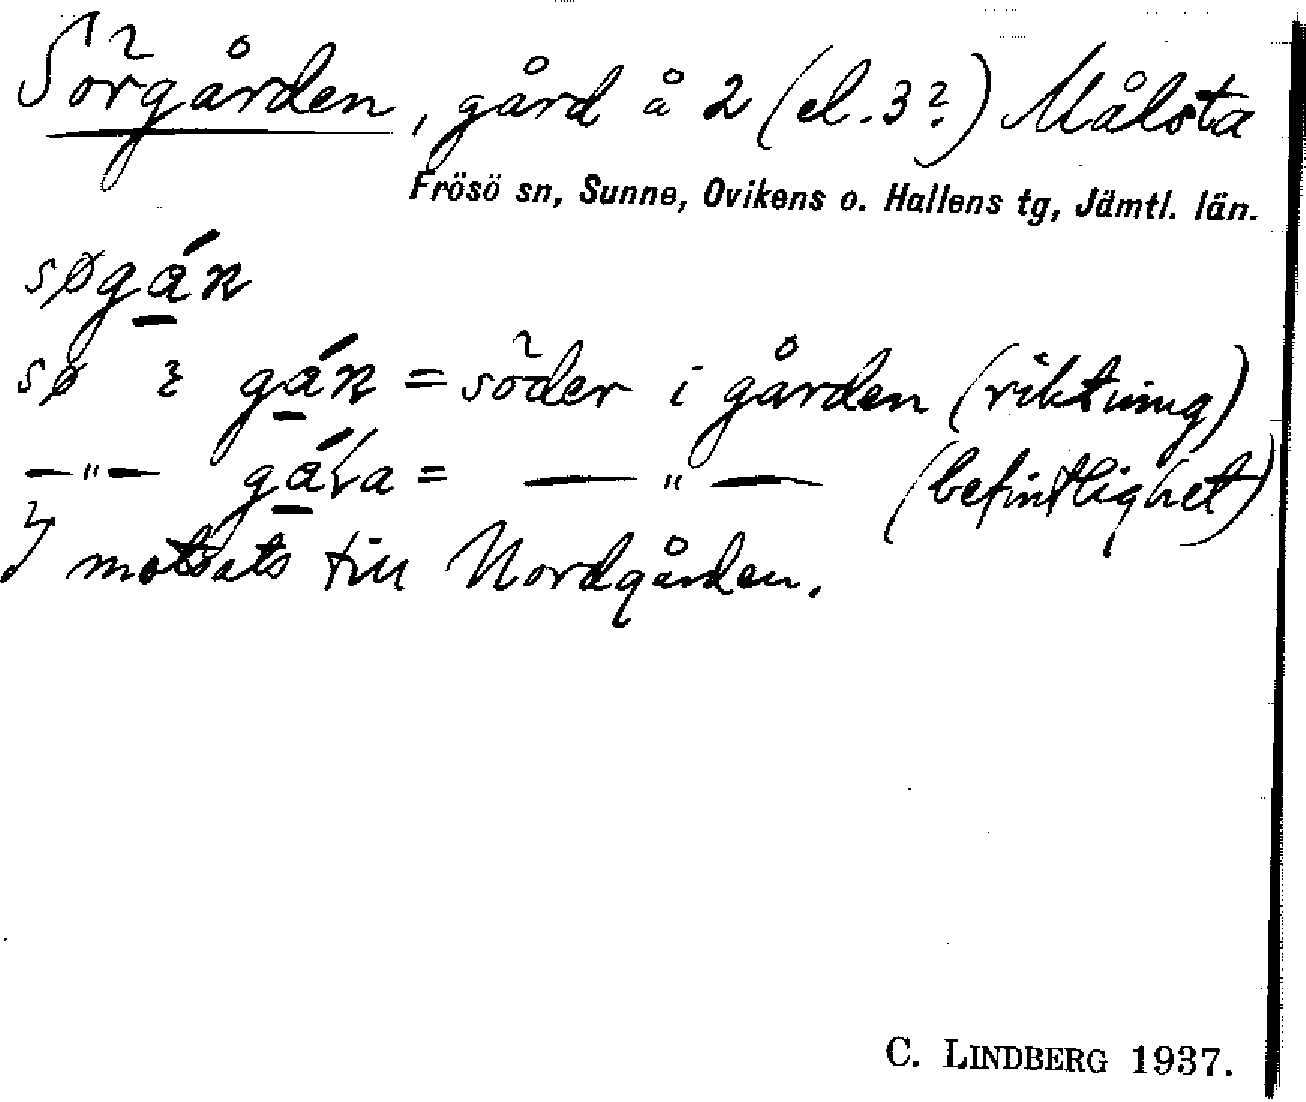 Sörgården, gård å 2 (el. 3?) Målsta
Frösö sn, Sunne, Ovikens o. Hallens tg, Jämtl. län.
søgán
sø gán = söder i gården (riktning)
—"— gáɽa = —"— (befintlighet)
motsats till Nordgården.
C. LINDBERG 1937.